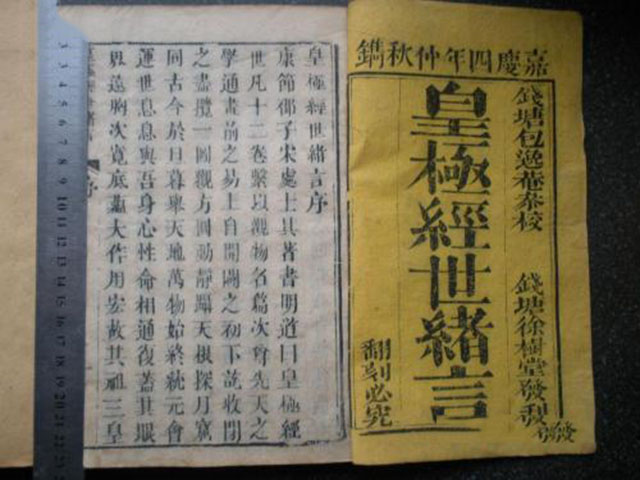 嘉慶四年仲秋鐫
錢塘包菴叅校 錢塘徐樹堂發
皇極經世緒言
翻刻必究
皇極經世緒言序
康節邵子宋處士其著書明道曰皇極經
世凡十二卷繫以觀物名篇次爲先天之
學通畫前之易上自開闢之初下訖收閉
之盡攬一圓觀方圓動靜躡天根探月窟
同古今於日暮與天地萬物始終統元會
運世息息與吾身心性命相通復蓋其眼
界遠胸次寬底蘊大作用宏故其祖三皇
序
3 4 5 6 7 8 9 10 11 12 13 14 15 16 17 18 19 20 21 22 23